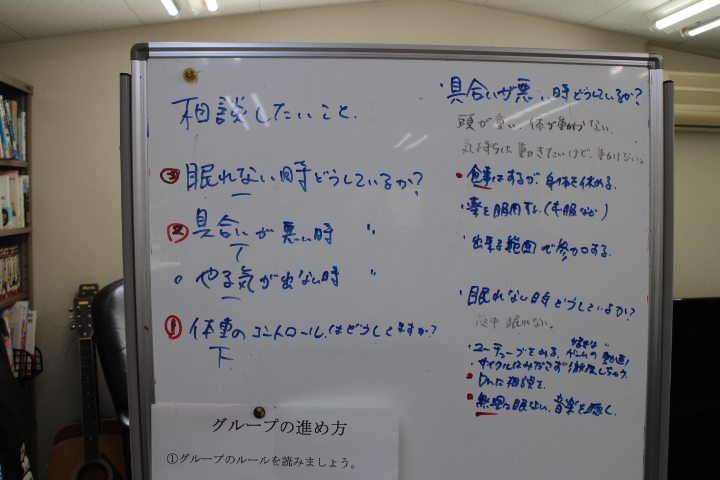 相談したいこと.
③ 眠れない時どうしているか?
② 具合いが悪い時 〃
○ やる気が出ない時 〃
① 体重のコントロールはどうしてますか?
下
グループの進め方
①グループのルールを読みましょう。
・具合いが悪い時どうしているか?
頭が重い、体が動かない、
気持ちは動きたいけど、動けない。
・食事はするが、身体を休める。
・薬を服用する。(
・出来る範囲で参加する。
・眠れない時どうしているか?
夜中 眠れない。
・ユーチューブをみる、ゲームの動画
・Drに相談を
・無理に眠ない、音楽を聴く。